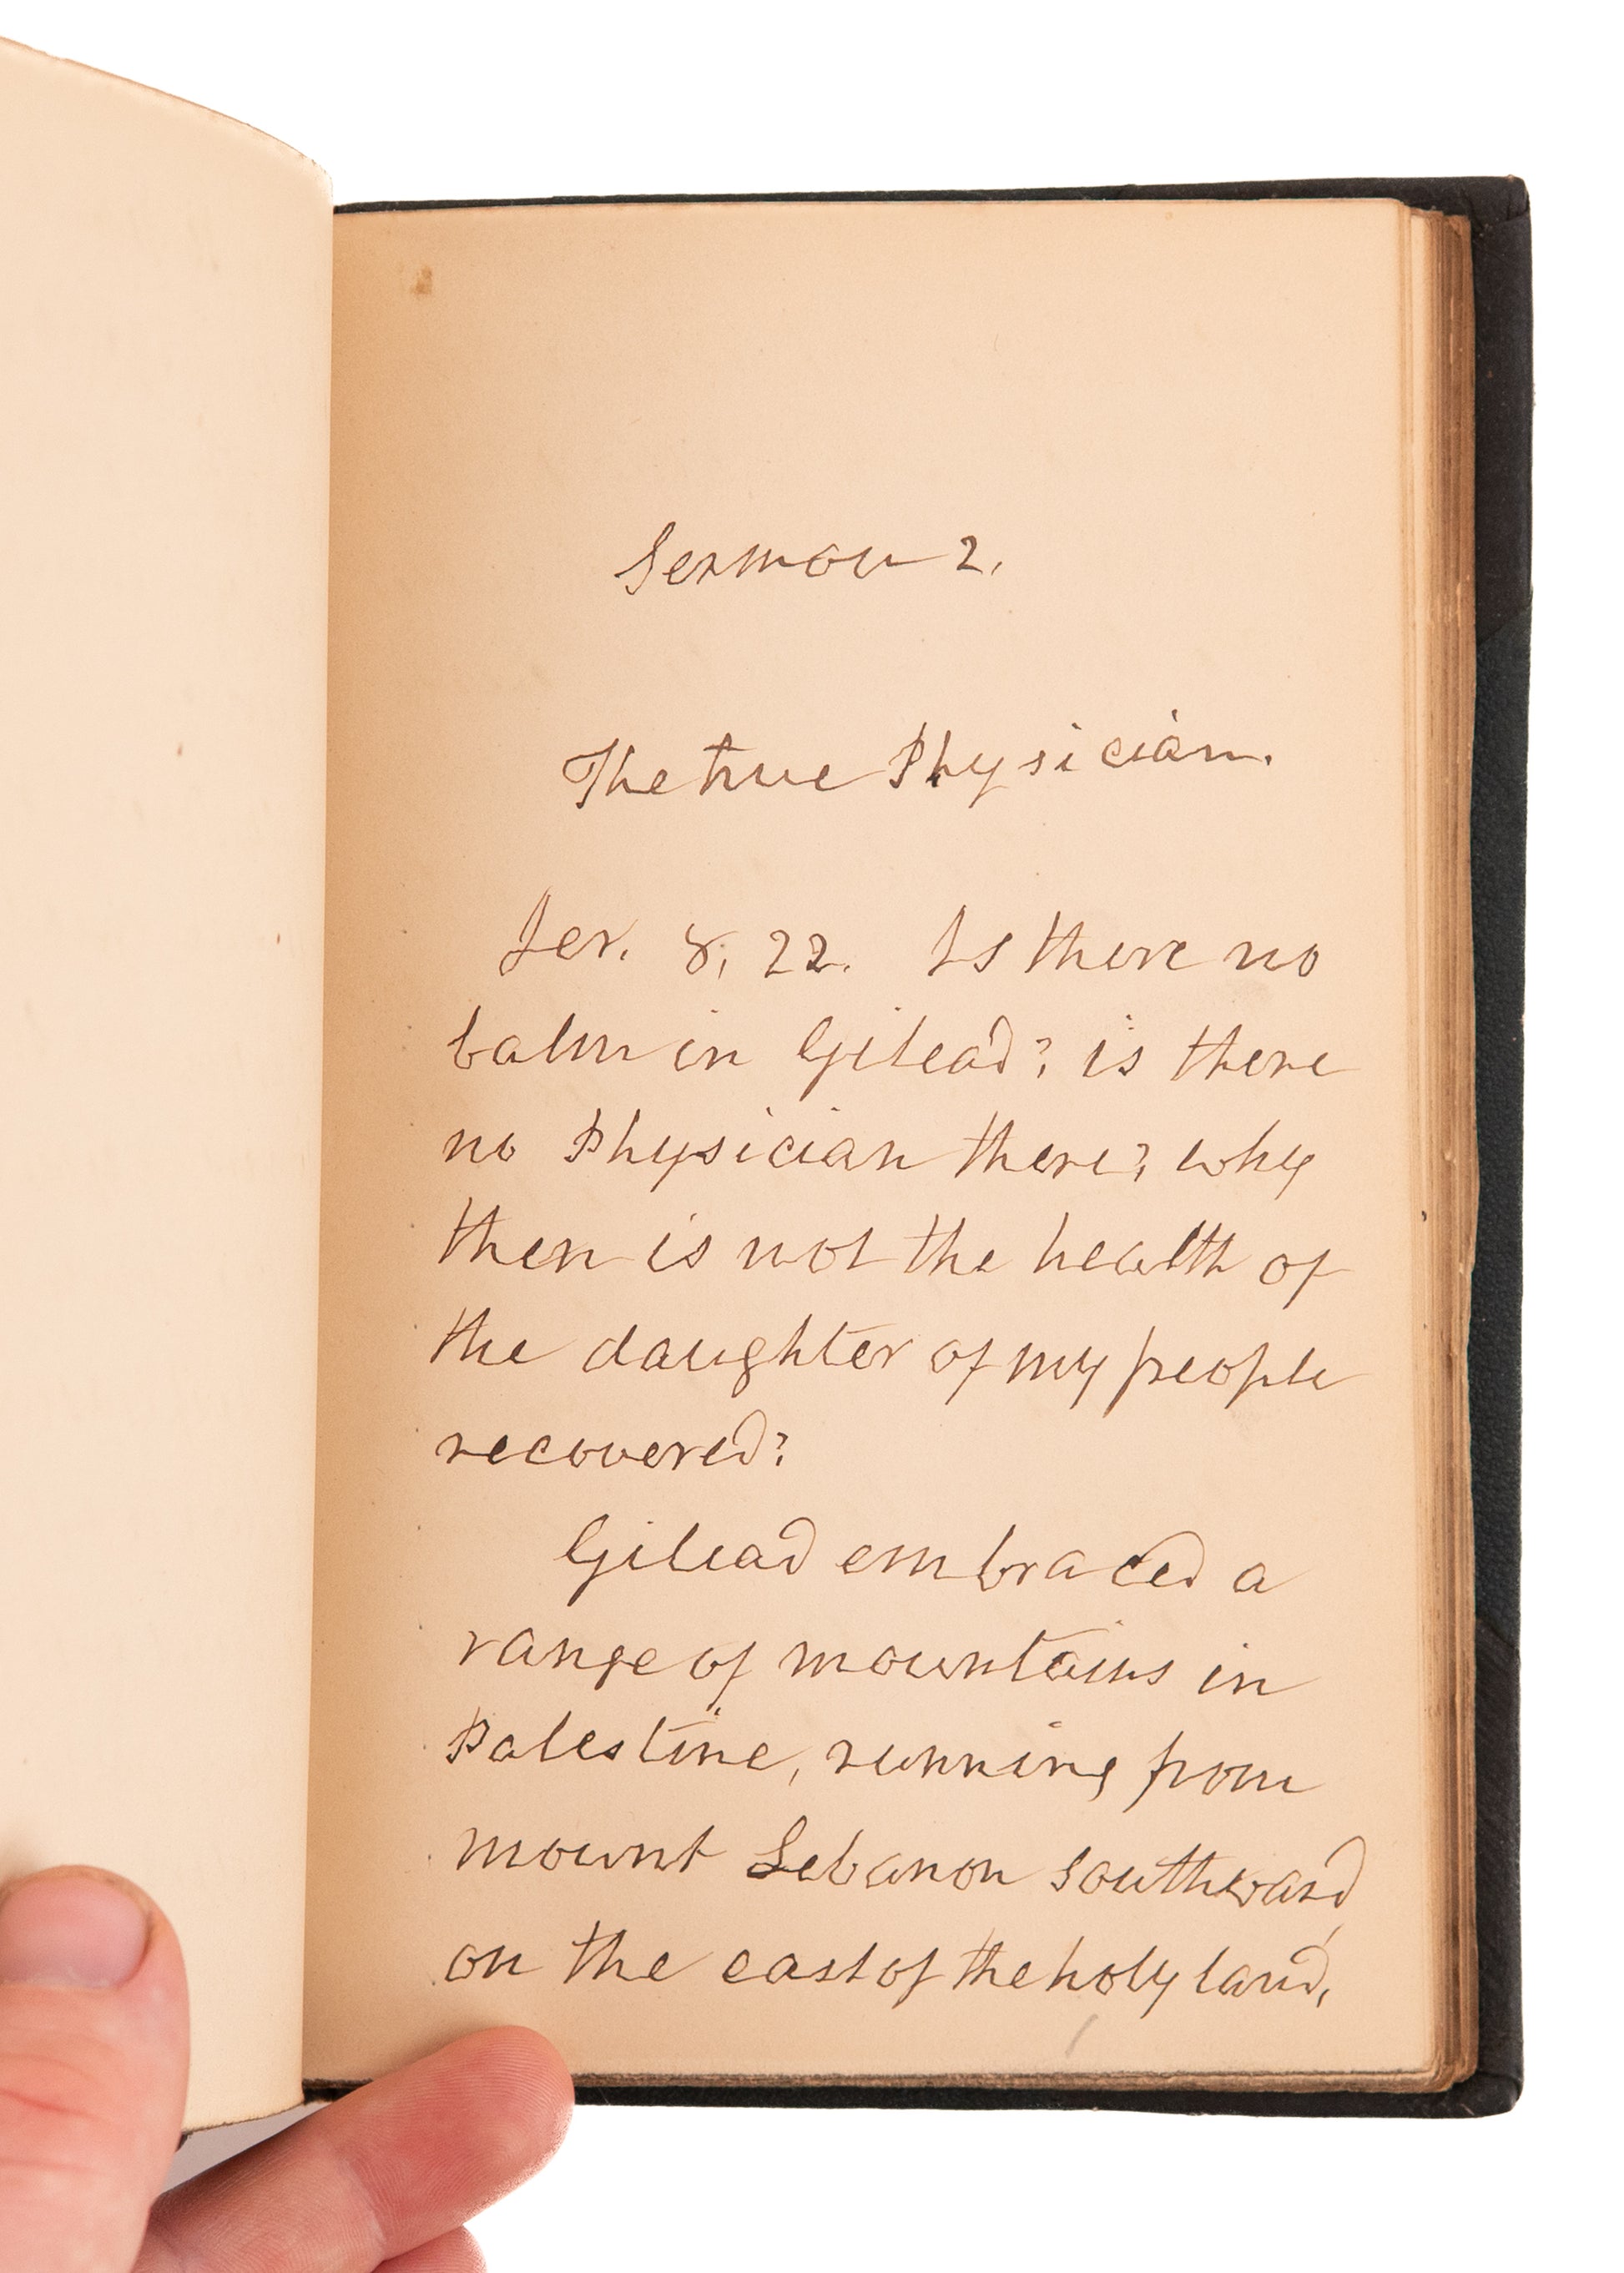 Sermon 2.
The true Physician.
Jer. 8, 22. Is there no
balm in Gilead? is there
no Physician there? why
then is not the health of
the daughter of my people
recovered?
Gilead embraced a
range of mountains in
Palestine, running from
mount Lebanon southward
on the east of the holy land,